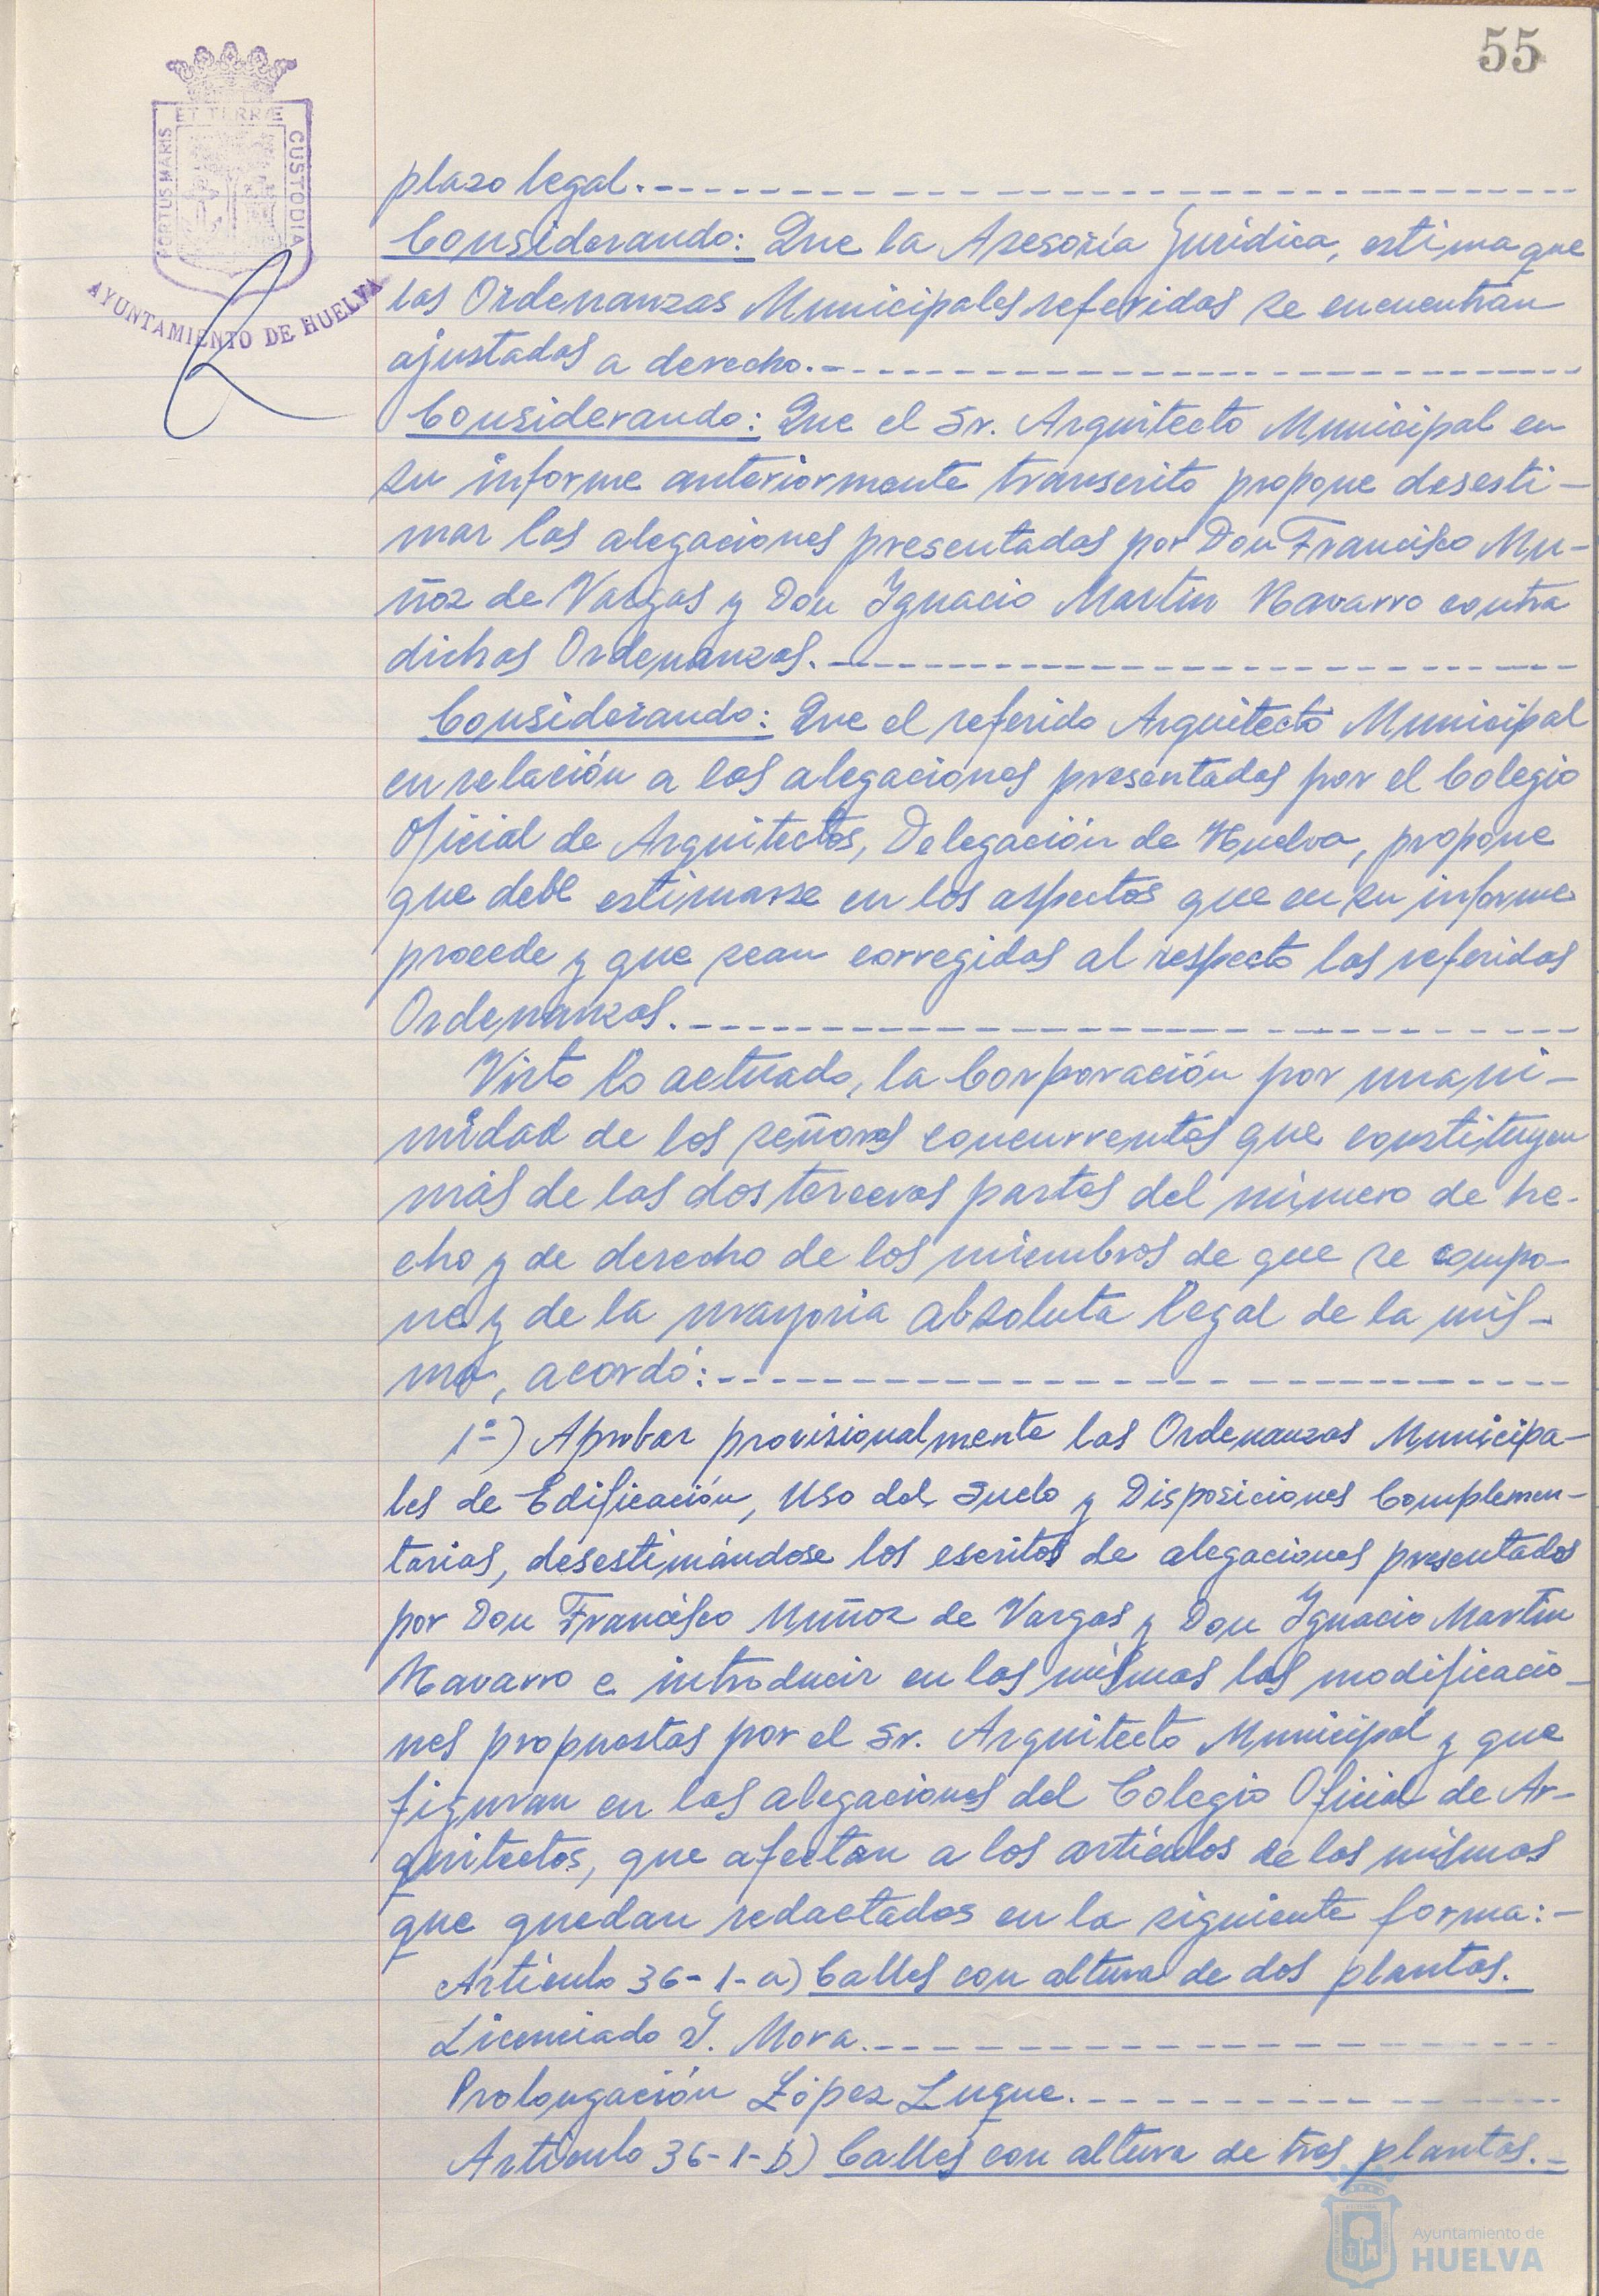 55
ET TERRÆ
PORTUS MARIS
CUSTODIA
AYUNTAMIENTO DE HUELVA
plazo legal.
Considerando: Que la Asesoría Jurídica, estima que
las Ordenanzas Municipales referidas se encuentran
ajustadas a derecho.
Considerando: Que el Sr. Arquitecto Municipal en
su informe anteriormente transcrito propone desesti-
mar las alegaciones presentadas por Don Francisco Mu-
ñoz de Vargas y Don Ignacio Martín Navarro contra
dichas Ordenanzas.
Considerando: Que el referido Arquitecto Municipal
en relación a las alegaciones presentadas por el Colegio
Oficial de Arquitectos, Delegación de Huelva, propone
que debe estimarse en los aspectos que en su informe
procede y que sean corregidas al respecto las referidas
Ordenanzas.
Visto lo actuado, la Corporación por unani-
midad de los señores concurrentes que constituyen
más de las dos terceras partes del número de he-
cho y de derecho de los miembros de que se compo-
ne y de la mayoria absoluta legal de la mis-
ma, acordó:
1º) Aprobar provisionalmente las Ordenanzas Municipa-
les de Edificación, Uso del Suelo y Disposiciones Complemen-
tarias, desestimándose los escritos de alegaciones presentados
por Don Francisco Muñoz de Vargas y Don Ignacio Martín
Navarro e introducir en las mismas las modificacio-
nes propuestas por el Sr. Arquitecto Municipal y que
figuran en las alegaciones del Colegio Oficial de Ar-
quitectos, que afectan a los artículos de las mismas
que quedan redactados en la siguiente forma:-
Artículo 36-1-a) Calles con altura de dos plantas.
Licenciado J. Mora.
Prolongación López Luque.
Artículo 36-1-b) Calles con altura de tres plantas.-
Ayuntamiento de
HUELVA